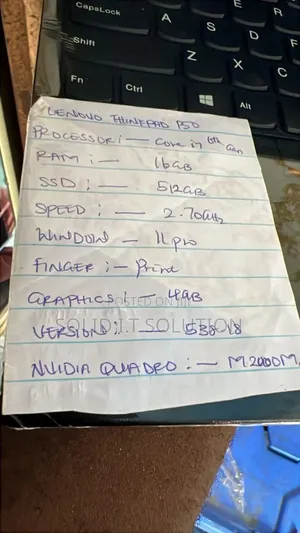 CapsLock
A
S
D
E
R
F
Shift
Z
X
C
Fn
Ctrl
Alt
LENOVO THINKPAD P50
PROCESSOR:— Core i7 6th Gen
RAM:— 16GB
SSD:— 512GB
SPEED:— 2.70GHz
WINDOW— 11 pro
FINGER:— Print
POSTED ON
GRAPHICS: 4GB
SOLID I.T SOLUTION
VERSION:
NVIDIA QUADRO:— M2000M